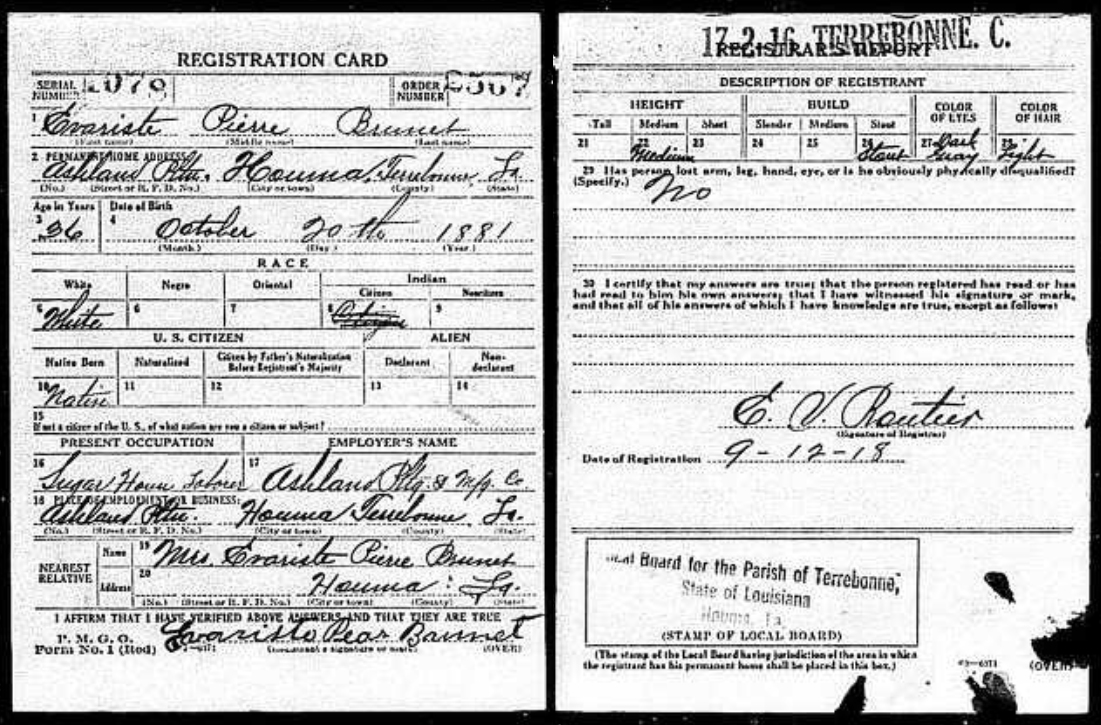 REGISTRATION CARD
SERIAL NUMBER 1078 ORDER NUMBER
1 Evariste Pierre Brunet
(First name) (Middle name) (Last name)
2 PERMANENT HOME ADDRESS:
Ashland Ptn. Houma, Terrebonne, La.
(No.) (Street or R. F. D. No.) (City or town) (County) (State)
Age in Years Date of Birth
3 36 4 October 20th 1881
(Month.) (Day.) (Year.)
RACE
White Negro Oriental Indian
Citizen Noncitizen
5 White 6 7 8 Citizen 9
U. S. CITIZEN ALIEN
Native Born Naturalized Citizen by Father's Naturalization Before Registrant's Majority Declarant Non-declarant
10 Native 11 12 13 14
15
If not a citizen of the U. S., of what nation are you a citizen or subject?
PRESENT OCCUPATION EMPLOYER'S NAME
16 Sugar House Laborer 17 Ashland Pltg. & Mfg. Co
18 PLACE OF EMPLOYMENT OR BUSINESS:
Ashland Ptn. Houma Terrebonne La.
(No.) (Street or R. F. D. No.) (City or town) (County) (State)
NEAREST RELATIVE
Name 19 Mrs. Evariste Pierre Brunet
Address 20 Houma La.
(No.) (Street or R. F. D. No.) (City or town) (County) (State)
I AFFIRM THAT I HAVE VERIFIED ABOVE ANSWERS AND THAT THEY ARE TRUE
P. M. G. O.
Form No. 1 (Red) Evariste Pear Brunet
(Registrant's signature or mark) (OVER)
17-2-16 TERREBONNE. C.
REGISTRAR'S REPORT
DESCRIPTION OF REGISTRANT
HEIGHT BUILD COLOR OF EYES COLOR OF HAIR
Tall Medium Short Slender Medium Stout
21 22 Medium 23 24 25 26 Stout 27 Dark Gray 28 Light
29 Has person lost arm, leg, hand, eye, or is he obviously physically disqualified?
(Specify.) No
30 I certify that my answers are true; that the person registered has read or has
had read to him his own answers; that I have witnessed his signature or mark,
and that all of his answers of which I have knowledge are true, except as follows:
E. V. Rautier
(Signature of Registrar)
Date of Registration 9-12-18
Local Board for the Parish of Terrebonne,
State of Louisiana
Houma, La.
(STAMP OF LOCAL BOARD)
(The stamp of the Local Board having jurisdiction of the area in which
the registrant has his permanent home shall be placed in this box.)
(OVER)